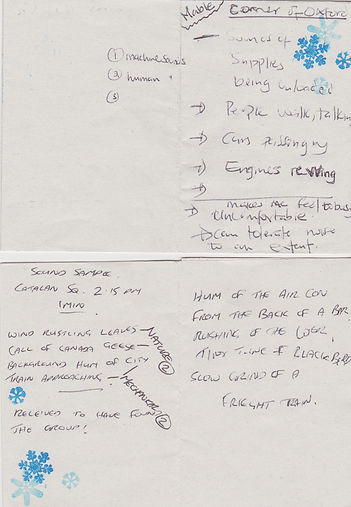 ① machine sounds
② human "
③
Mable
Corner of Oxford
Sounds of
Supplies
being unloaded
→ People walk, talking
→ Cars passing by
→ Engines revving
→
makes me feel
Uncomfortable.
→ I can tolerate noise
to an extent.
SOUND SAMPLE.
CATALAN SQ. 2.15 PM
1 MIN
WIND RUSTLING LEAVES —
CALL OF CANADA GEESE —
NATURE ②
BACKGROUND HUM OF CITY
TRAIN APPROACHING —!
MECHANICAL ②
RELIEVED TO HAVE FOUND
THE GROUP!
HUM OF THE AIR CON
FROM THE BACK OF A BAR.
RUSHING OF THE
TUNE OF BLACKBIRD
SLOW GRIND OF A
FREIGHT TRAIN.